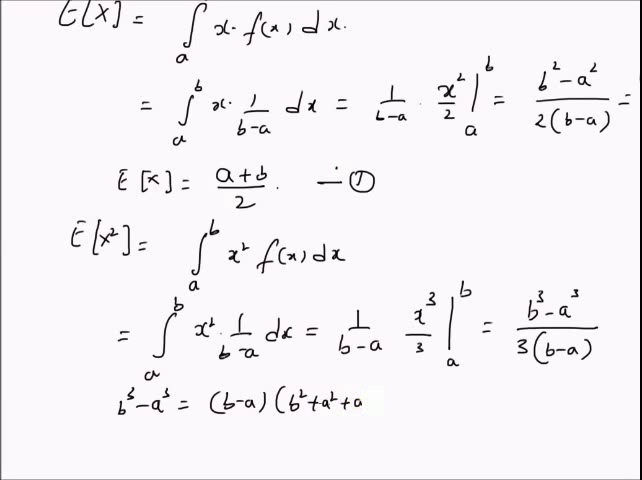 E[X] = ∫ₐ x · f(x) dx.
= ∫ₐᵇ x · 1/(b-a) dx = 1/(b-a) · x²/2 |ₐᵇ = (b² - a²)/(2(b-a)) =
E[x] = (a+b)/2. — ①
E[x²] = ∫ₐᵇ x² f(x) dx
= ∫ₐᵇ x² · 1/(b-a) dx = 1/(b-a) x³/3 |ₐᵇ = (b³ - a³)/(3(b-a))
b³ - a³ = (b-a) (b² + a² + a